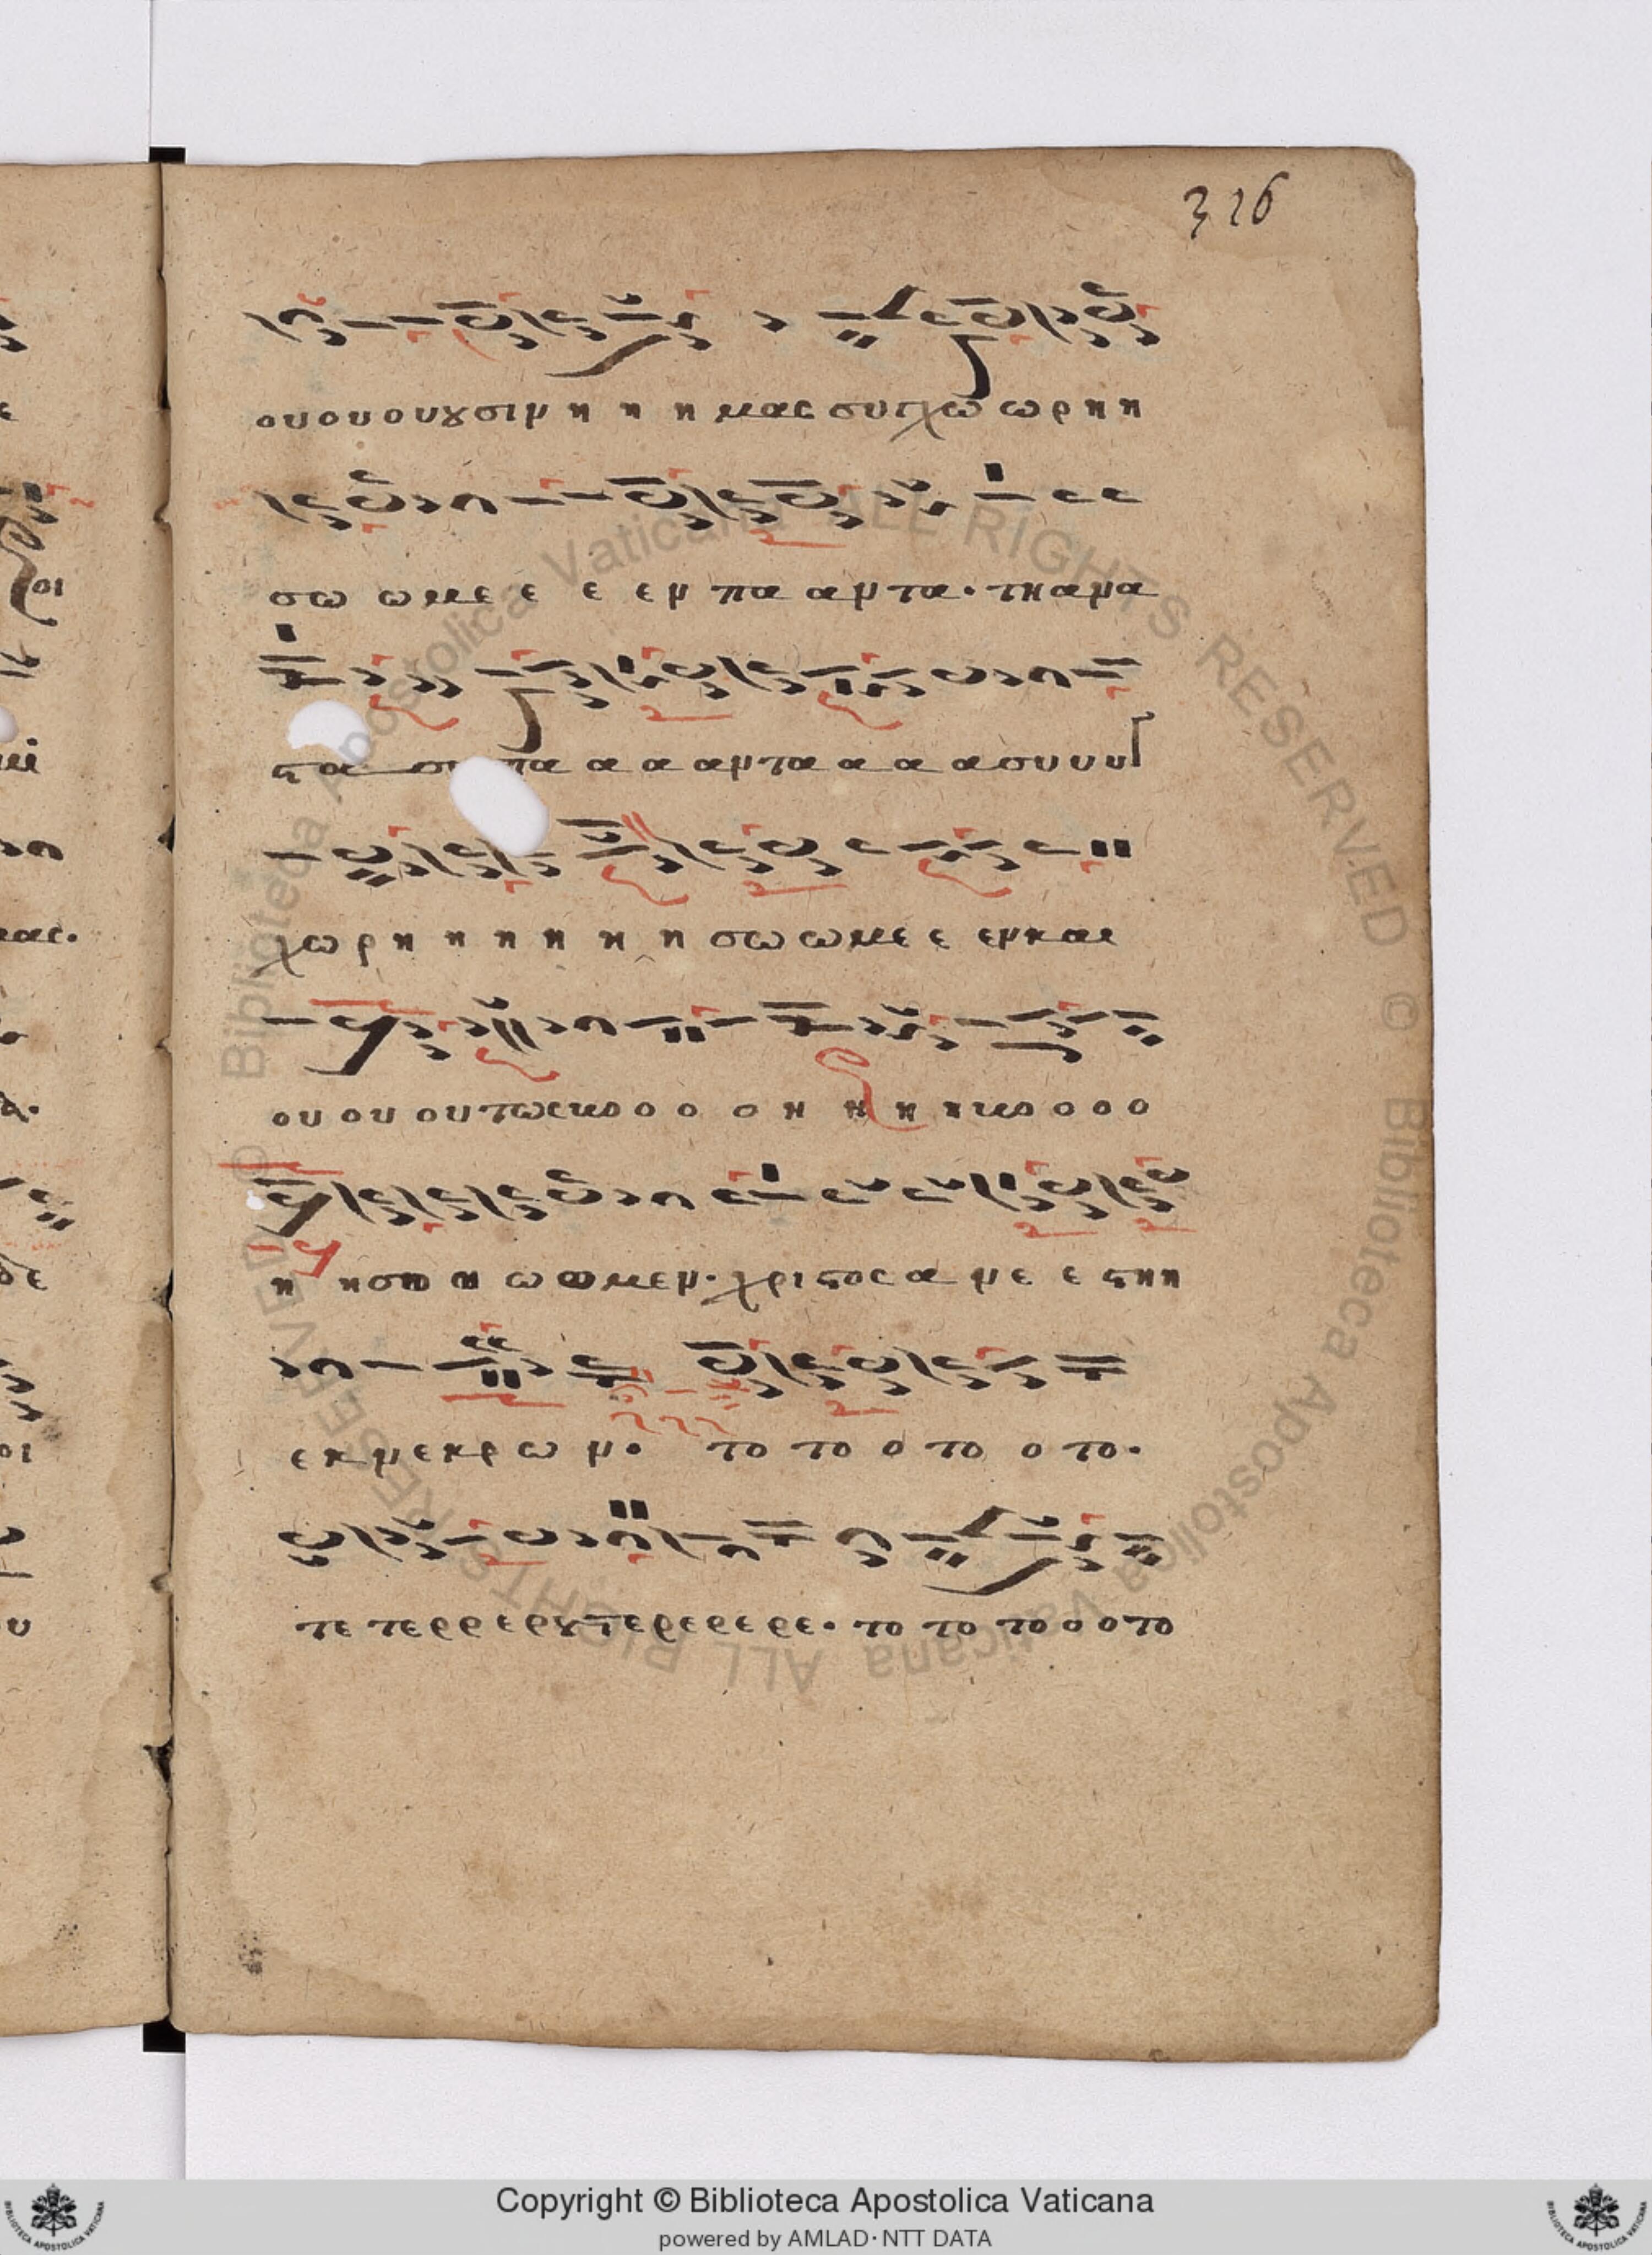 316
ου ου ου ȣσιν η η η μας συγχω ω ρη η
σω ω με ε ε εν πα αν τα. τη ανα
στα σι πα α α αντα α α α συ υ υγ
χω ρη η η η η η σω ω με ε εν και
ου ου ουτως κο ο ο ο η η η η κο ο ο ο
η ησω ω ω ωμεν. χριστος α νε ε στη η
εκ νεκρω ν. το το ο το ο το.
τε τερρερȣτερερερε. το το το ο ο το
Biblioteca Apostolica Vaticana ALL RIGHTS RESERVED ©
Biblioteca Apostolica Vaticana ALL RIGHTS RESERVED ©
Copyright © Biblioteca Apostolica Vaticana
powered by AMLAD·NTT DATA